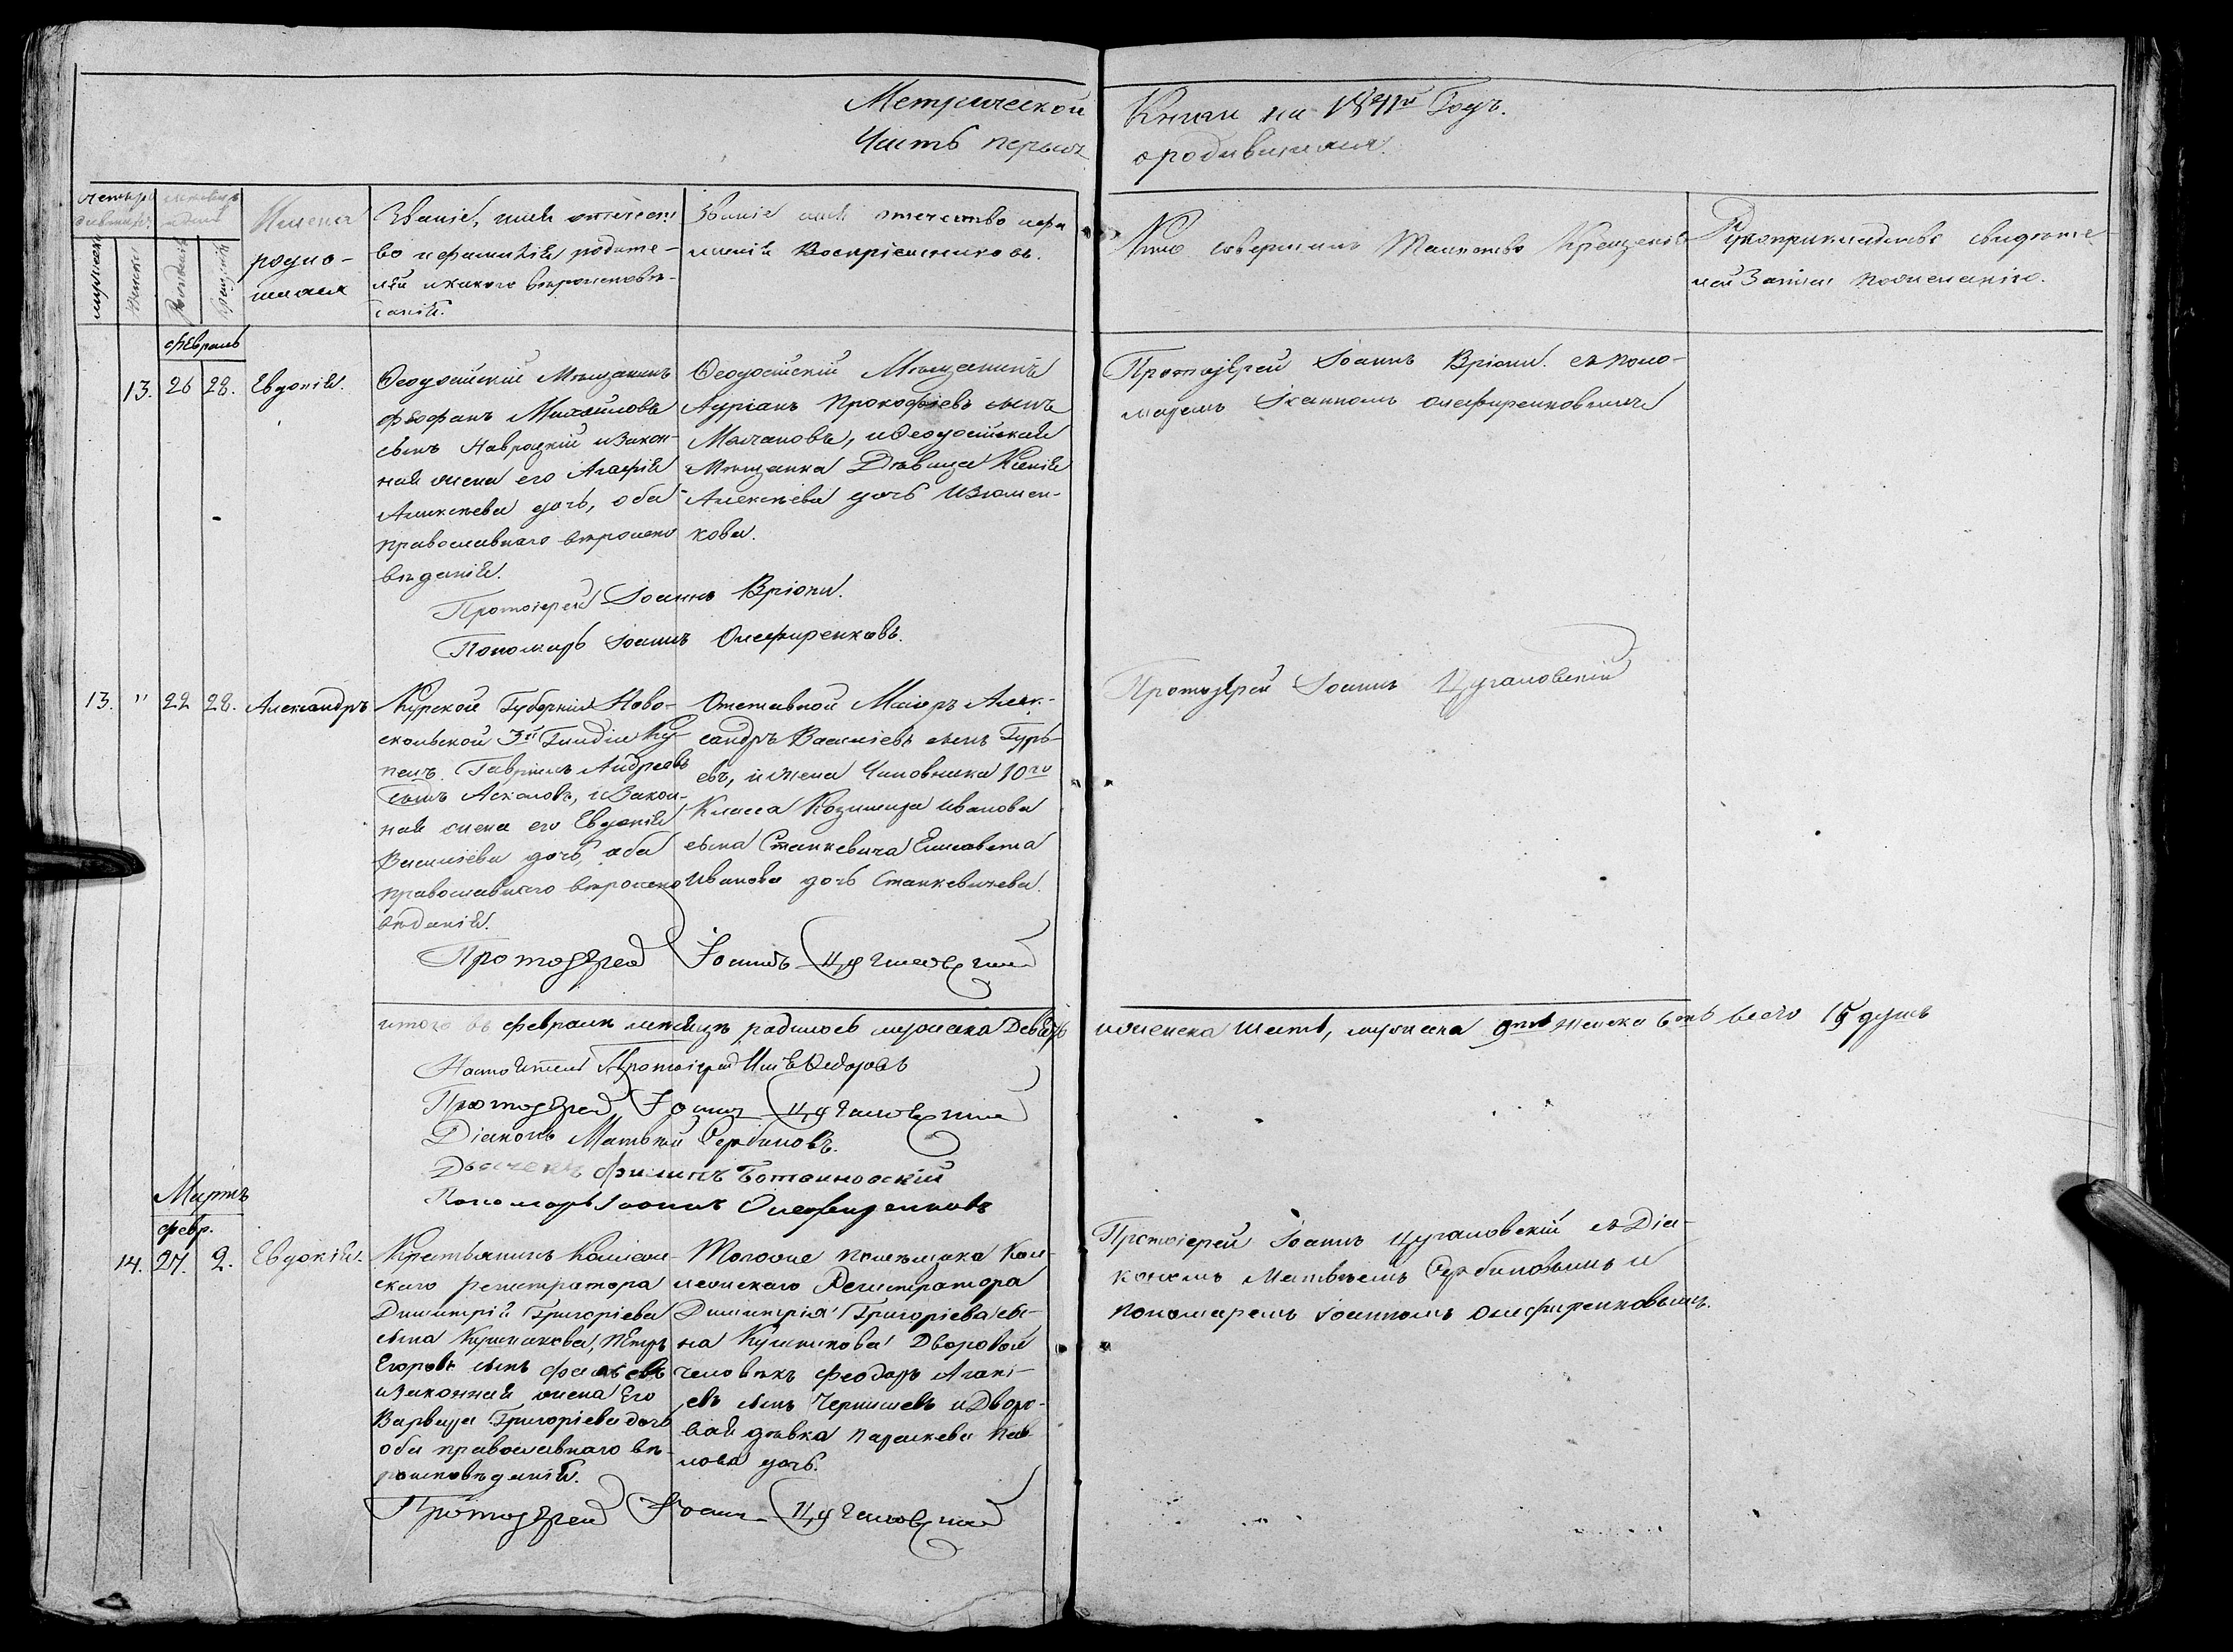 Метрической Книги на 1841й Годъ.
Часть первая о родившихся.
Счетъ ро
дившихся
мужеска
женска
месяцъ
и день
Рожденія
Крещенія
Имена
родив-
шихся
Званіе, имя отечест
во и фамилія родите-
лей и какого вероисповѣ-
данія.
Званіе имя отечество и фа
милія Воспріемниковъ.
Кто совершалъ Таинство Крещенія
Рукоприкладство свидѣте-
лей Записи по желанію.
Февраль
13. 26 28. Евдокія.
Феодосійскій Мѣщанинъ
Феофанъ Михайловъ
сынъ Навроцкій и закон-
ная жена его Агафія
Алексѣева дочь, оба
православнаго вѣроиспо
вѣданія.
Феодосійскій Мѣщанинъ
Адріанъ Прокофіевъ сынъ
Молчановъ, и Феодосійская
Мѣщанка Дѣвица Ксенія
Алексѣева дочь Изюмен-
кова.
Протоіерей Іоаннъ Вріони. съ поно-
маремъ Іоанномъ Олефиренковымъ
Протоіерей Іоаннъ Вріони.
Пономарь Іоаннъ Олефиренковъ.
13. " 22 28. Александръ
Курской Губерніи Ново-
скольской 3й Гилдіи Ку
пецъ Гавріилъ Андреевъ
сынъ Аскаловъ, и закон-
ная жена его Евдокія
Васильева дочь, оба
православнаго вѣроиспо
вѣданія.
Отставной Маіоръ Алек-
сандръ Васильевъ сынъ Гурь-
евъ, и жена Чиновника 10го
Класса Козимира Иванова
сына Станкевича Елисавета
Иванова дочь Станкевичева.
Протоіерей Іоаннъ Цугаловскій
Протоіерей Іоаннъ Цугаловскій
итого въ Февралѣ месяцѣ родилось мужеска Девять женска шесть, мужеска 9ть женска 6ть всего 15 душъ
Настоятель Протоіерей Илія Федоровъ
Протоіерей Іоаннъ Цугаловскій
Діаконъ Матвѣй Сербиновъ.
Дьячекъ Филипъ Ботвиновскій
Пономарь Іоаннъ Олефиренковъ
Мартъ
февр.
14. 27. 2. Евдокія.
Крестьянинъ Коллеж-
скаго регистратора
Димитрія Григоріева
сына Кушникова, Петръ
Егоровъ сынъ
и законная жена Его
Варвара Григоріева дочь
оба православнаго вѣ-
роисповѣданія.
Тогоже помѣщика Кол-
лежскаго Регистратора
Димитрія Григоріева сы-
на Кушникова Дворовой
человѣкъ Феодоръ Агапі-
евъ сынъ Чернышевъ и Дворо-
вая дѣвка Параскева Пав-
лова дочь.
Протоіерей Іоаннъ Цугаловскій съ Діа-
кономъ Матвѣемъ Сербиновымъ и
пономаремъ Іоанномъ Олефиренковымъ.
Протоіерей Іоаннъ Цугаловскій